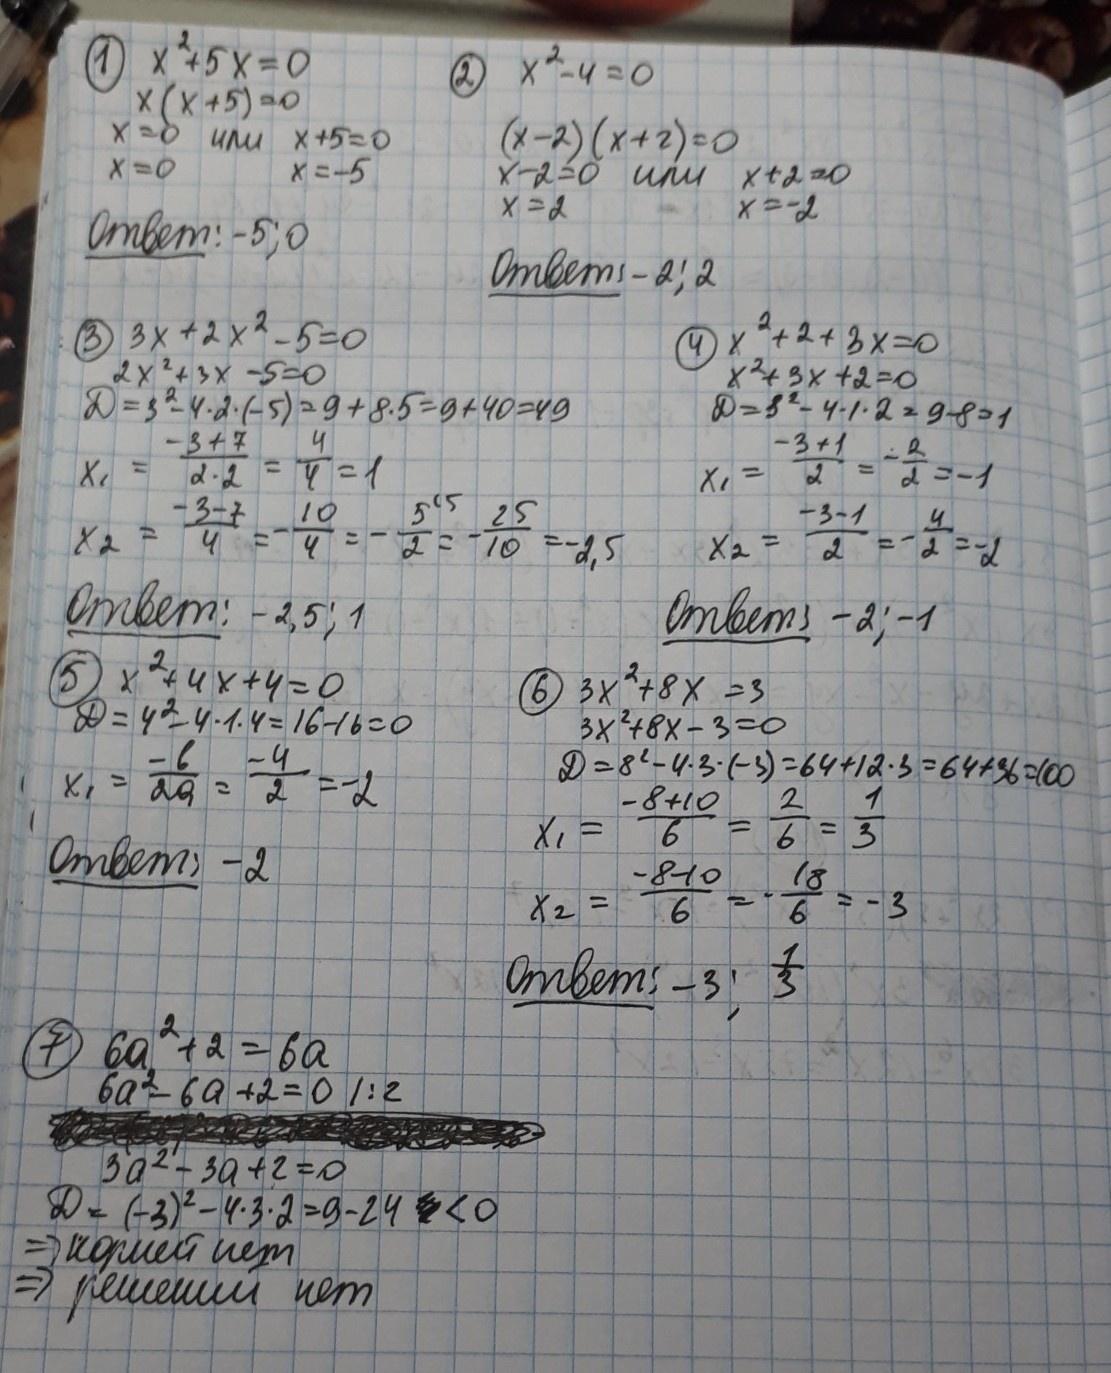 ① x²+5x=0
x(x+5)=0
x=0 или x+5=0
x=0 x=-5
Ответ: -5;0
② x²-4=0
(x-2)(x+2)=0
x-2=0 или x+2=0
x=2 x=-2
Ответ: -2;2
③ 3x+2x²-5=0
2x²+3x-5=0
D=3²-4·2·(-5)=9+8·5=9+40=49
x₁ = (-3+7)/(2·2) = 4/4 = 1
x₂ = (-3-7)/4 = -10/4 = -5/2 ⁽⁵ = -25/10 = -2,5
Ответ: -2,5; 1
④ x²+2+3x=0
x²+3x+2=0
D=3²-4·1·2=9-8=1
x₁ = (-3+1)/2 = -2/2 = -1
x₂ = (-3-1)/2 = -4/2 = -2
Ответ: -2;-1
⑤ x²+4x+4=0
D=4²-4·1·4=16-16=0
x₁ = -b/2a = -4/2 = -2
Ответ: -2
⑥ 3x²+8x =3
3x²+8x-3=0
D=8²-4·3·(-3)=64+12·3=64+36=100
x₁ = (-8+10)/6 = 2/6 = 1/3
x₂ = (-8-10)/6 = -18/6 = -3
Ответ: -3; 1/3
⑦ 6a²+2=6a
6a²-6a+2=0 |:2
3a²-3a+2=0
D=(-3)²-4·3·2=9-24 <0
=> корней нет
=> решений нет